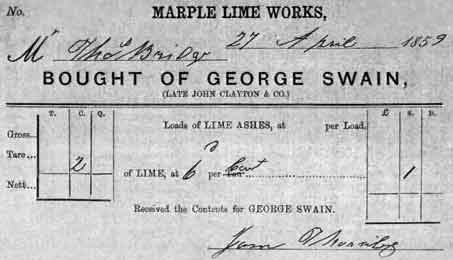 No. MARPLE LIME WORKS,
Mr Thos Bridge 27 April 1859
BOUGHT OF GEORGE SWAIN,
(LATE JOHN CLAYTON & CO.)
T. C. Q. £ S. D.
Gross... Loads of LIME ASHES, at per Load.
Tare ... 2
Nett... of LIME, at 6 per Cwt 1
Received the Contents for GEORGE SWAIN.